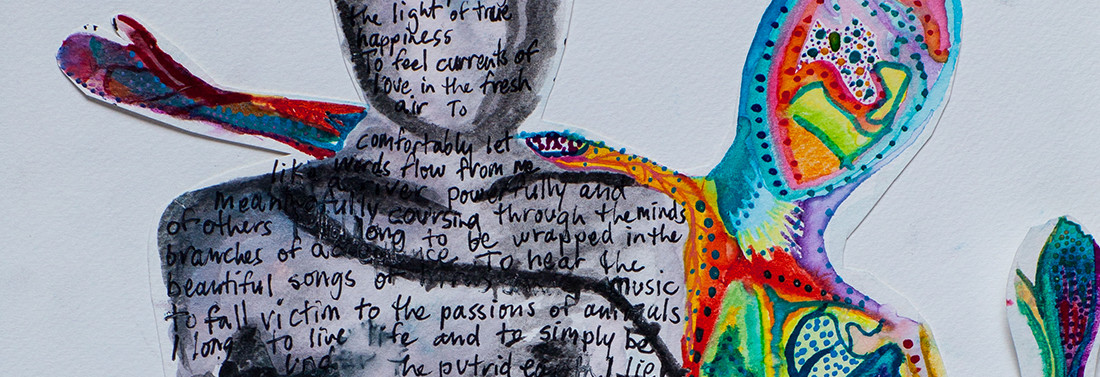 the light of true
happiness
To feel currents of
love in the fresh
air To
comfortably let
words flow from me
river powerfully and
Meaningfully coursing through the minds
of others I long to be wrapped in the
branches of To hear the
beautiful songs of music
to fall victim to the passions of animals
I long to live life and to simply be
the putrid I lie